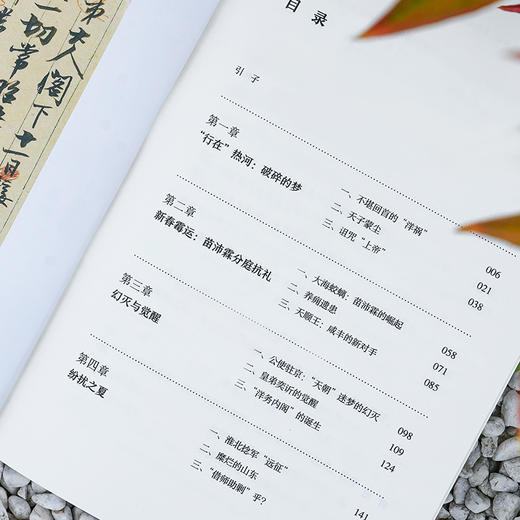 夫人阁下十一日
一切常
目 录
引 子
第一章
“行在”热河：破碎的梦
一、不堪回首的“洋祸” 006
二、天子蒙尘 021
三、诅咒“上帝” 038
第二章
新春霉运：苗沛霖分庭抗礼
一、大海蛟螭：苗沛霖的崛起 058
二、养痈遗患 071
三、天顺王：咸丰的新对手 085
第三章
幻灭与觉醒
一、公使驻京：“天朝”迷梦的幻灭 098
二、皇弟奕䜣的觉醒 109
三、“洋务内阁”的诞生 124
第四章
纷扰之夏
一、淮北捻军“远征” 141
二、糜烂的山东
三、“借师助剿”乎？